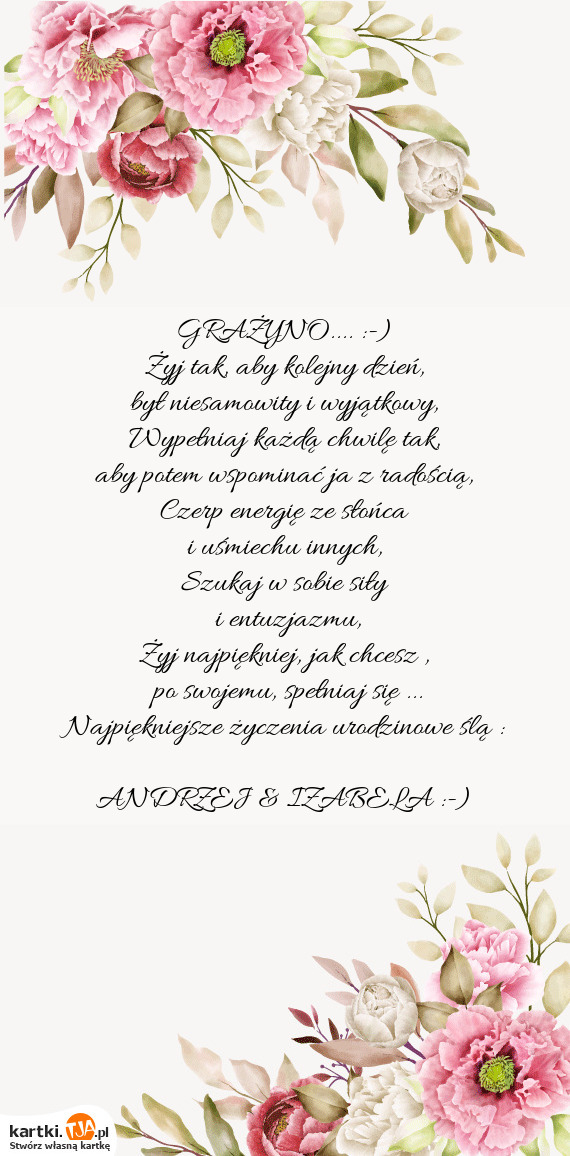 GRAŻYNO.... :-)
Żyj tak, aby kolejny dzień,
był niesamowity i wyjątkowy,
Wypełniaj każdą chwilę tak,
aby potem wspominać ja z radością,
Czerp energię ze słońca
i uśmiechu innych,
Szukaj w sobie siły
i entuzjazmu,
Żyj najpiękniej, jak chcesz ,
po swojemu, spełniaj się ...
Najpiękniejsze życzenia urodzinowe ślą :
ANDRZEJ & IZABELA :-)
kartki.TJA.pl
Stwórz własną kartkę